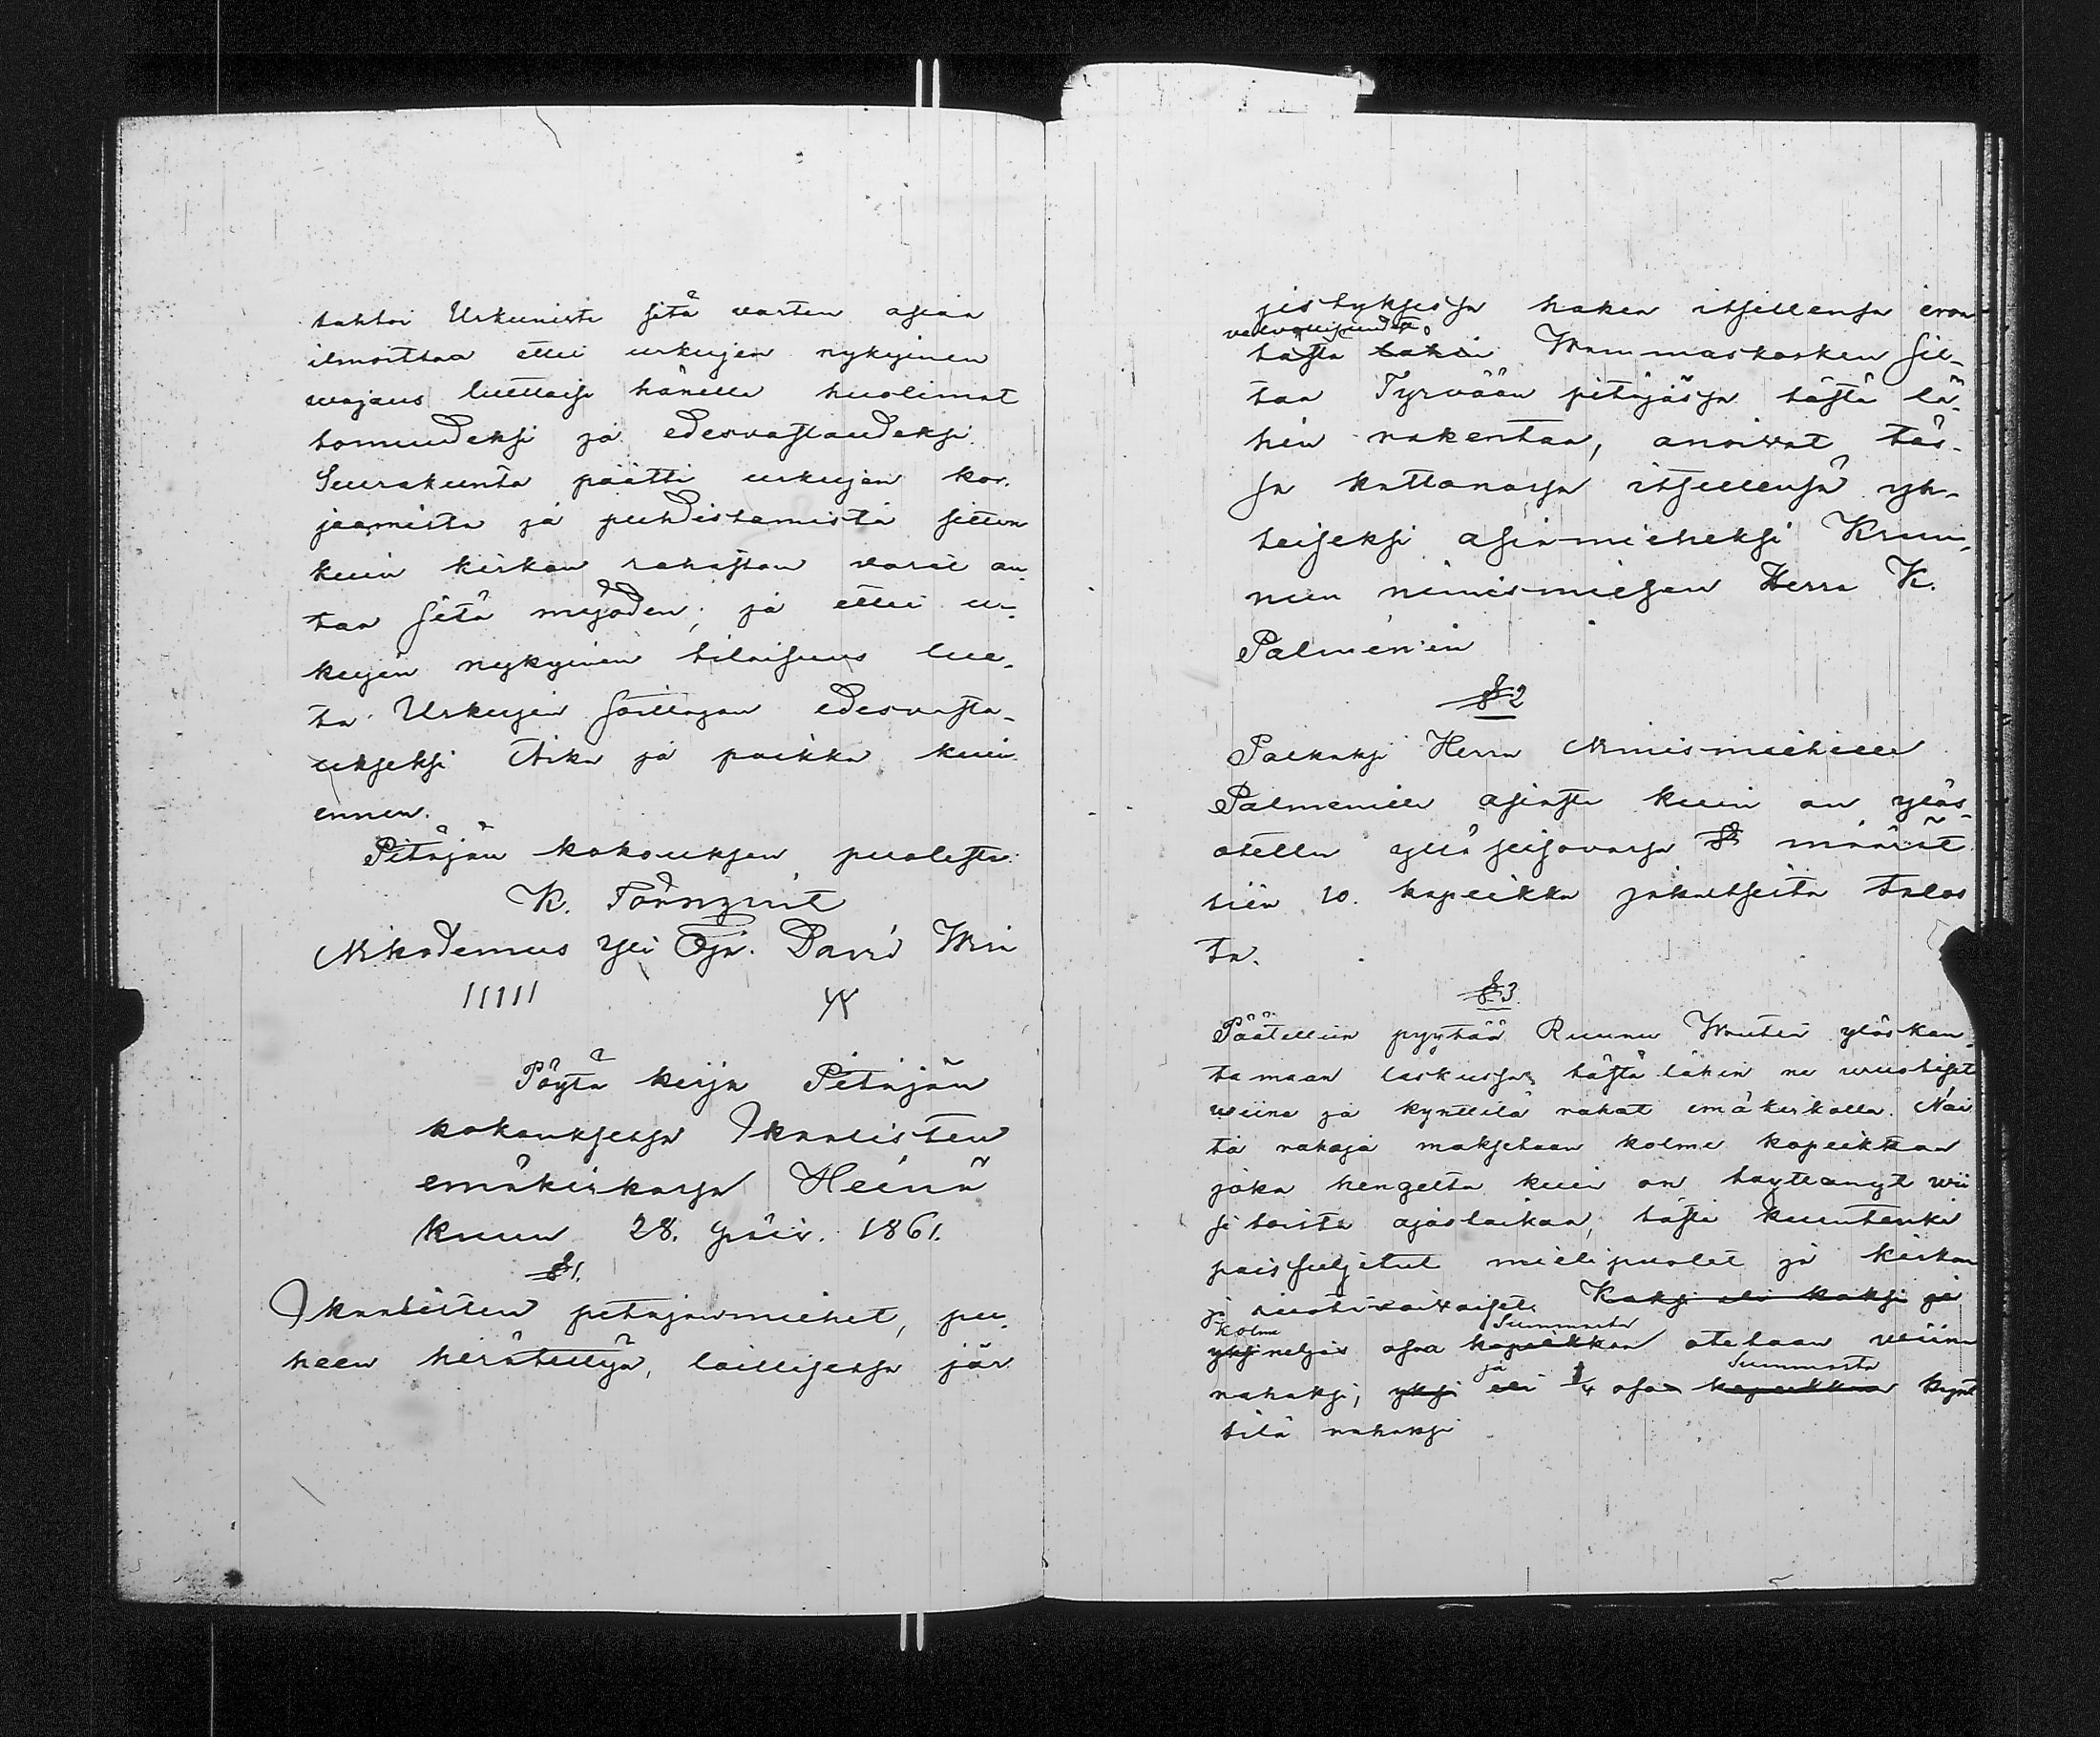 tahtoi Urkunisti sitä varten asian
ilmoittaa ettei urkujen nykyinen
wajaus luettaisi hänelle huolimat
tomuudeksi ja edesvastaudeksi.
Seurakunta päätti urkujen kor-
jaamista ja puhdistamista sitten
kuin kirkon rahastan varat an-
taa sitä myöden; ja ettei ur-
kujen nykyinen tilaisuus lue-
ta Urkujen soittajan edesvasta-
ukseksi Aika ja paikka kuin
ennen.
Pitäjän kokouksen puolesta:
K. Törnqvist
Nikodemus Yli Oja. David Wiri
Pöytä kirja Pitäjän
kokouksessa Ikaalisten
emäkirkossa Heinä
kuun 28. päiv. 1861.
§1.
Ikaalisten pitäjänmiehet, pu-
heen herätettyä, laillisessa jär
jestyksessä hakea itsellensä eron
velvollisuudesta
tästä lähin Wammaskosken sil-
taa Tyrvään pitäjässä tästä lä-
hin rakentaa, anoivat täs-
sä kokkonassa itsellensä yh-
teiseksi asiamieheksi Kruu-
nun nimismiehen Herra K.
Palmén'in
§2
Palkaksi Herra Nimismiehelle
Palmenille asiasta kuin on ylös
otettu yllä seisovassa § määrät
tiin 10. kopeikka jokaitseita talos
ta.
§3.
Päätettiin pyytää Ruunu Woutin ylöskan-
tamaan laskussa tästä lähin ne wuotiset
wiina ja kynttilä rahat emäkirkolle. Näi
tä rahoja maksetaan kolme kopeikkaa
joka hengeltä kuin on täyttänyt wii
si toista ajastaikaa, tästä kuitenki
poissuljetut mielipuolet ja kirkon
ja ruotivaivaiset. Kaksi eli kaksi ja
Kolme Summasta
yksi neljäs osaa kopeikkaa otetaan wiina
ja Summasta
rahaksi, yksi eli 1/4 osaa kopeikkaa kynt
tilä rahaksi